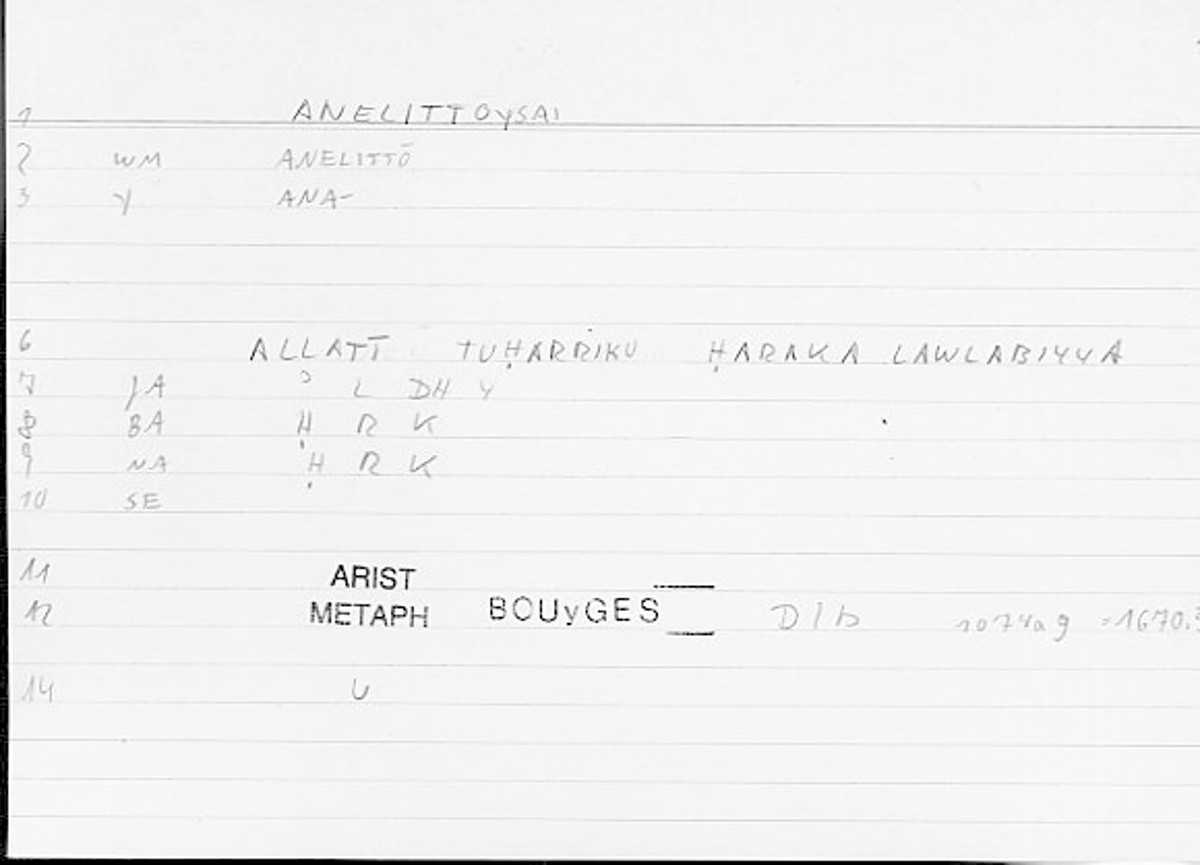 1 ANELITTOySAI
2 WM ANELITTŌ
3 y ANA-
6 ALLATĪ TUḤARRIKU ḤARAKA LAWLABIYYA
7 JA ʾ L DH Y
8 BA Ḥ R K
9 NA Ḥ R K
10 SE
11 ARIST
12 METAPH BOUyGES D/b 1074a9 =1670.3
14 U